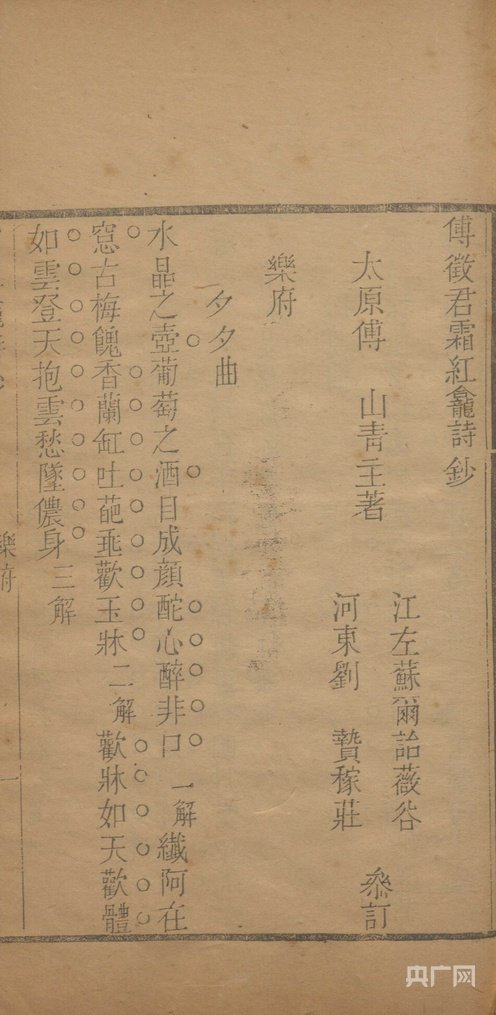 傅徵君霜紅龕詩鈔
太原傅　山青主著
江左蘇爾詒薇谷
河東劉　贄稼莊
叅訂
樂府
夕夕曲
水晶之壺葡萄之酒目成顔酡心醉非口一解纖阿在
窓古梅餽香蘭缸吐葩乖歡玉牀二解歡牀如天歡體
如雲登天抱雲愁墜儂身三解
樂府
一
央广网